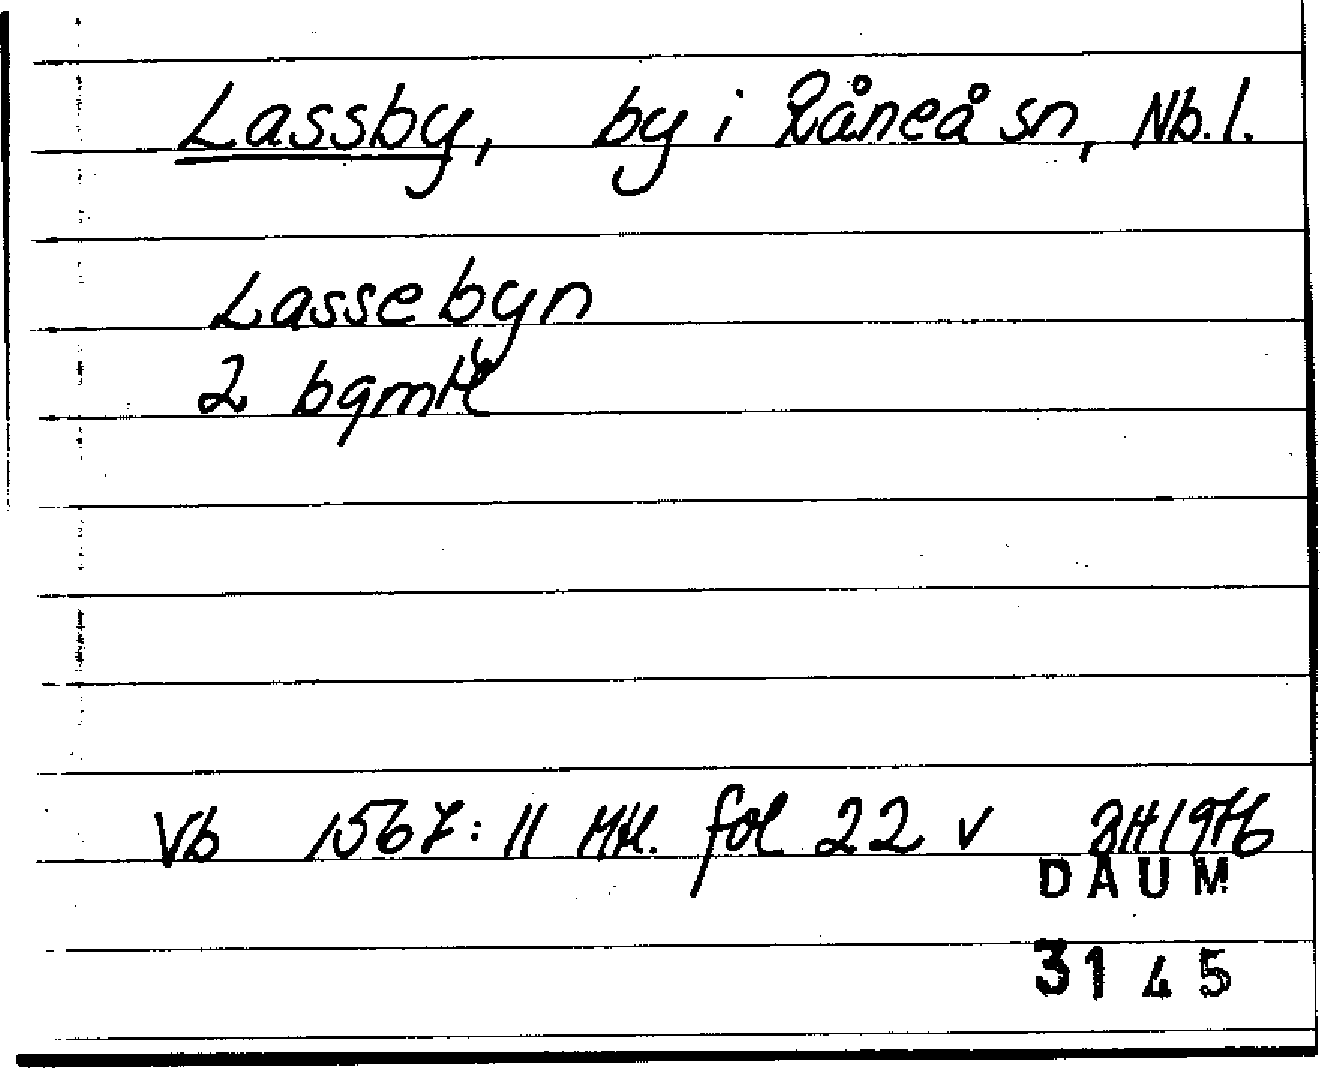 Lassby, by i Råneå sn, Nb. l.
Lassebyn
2 bqmkl
Vb 1567: 11 MH. fol 22 v
DAUM
3145